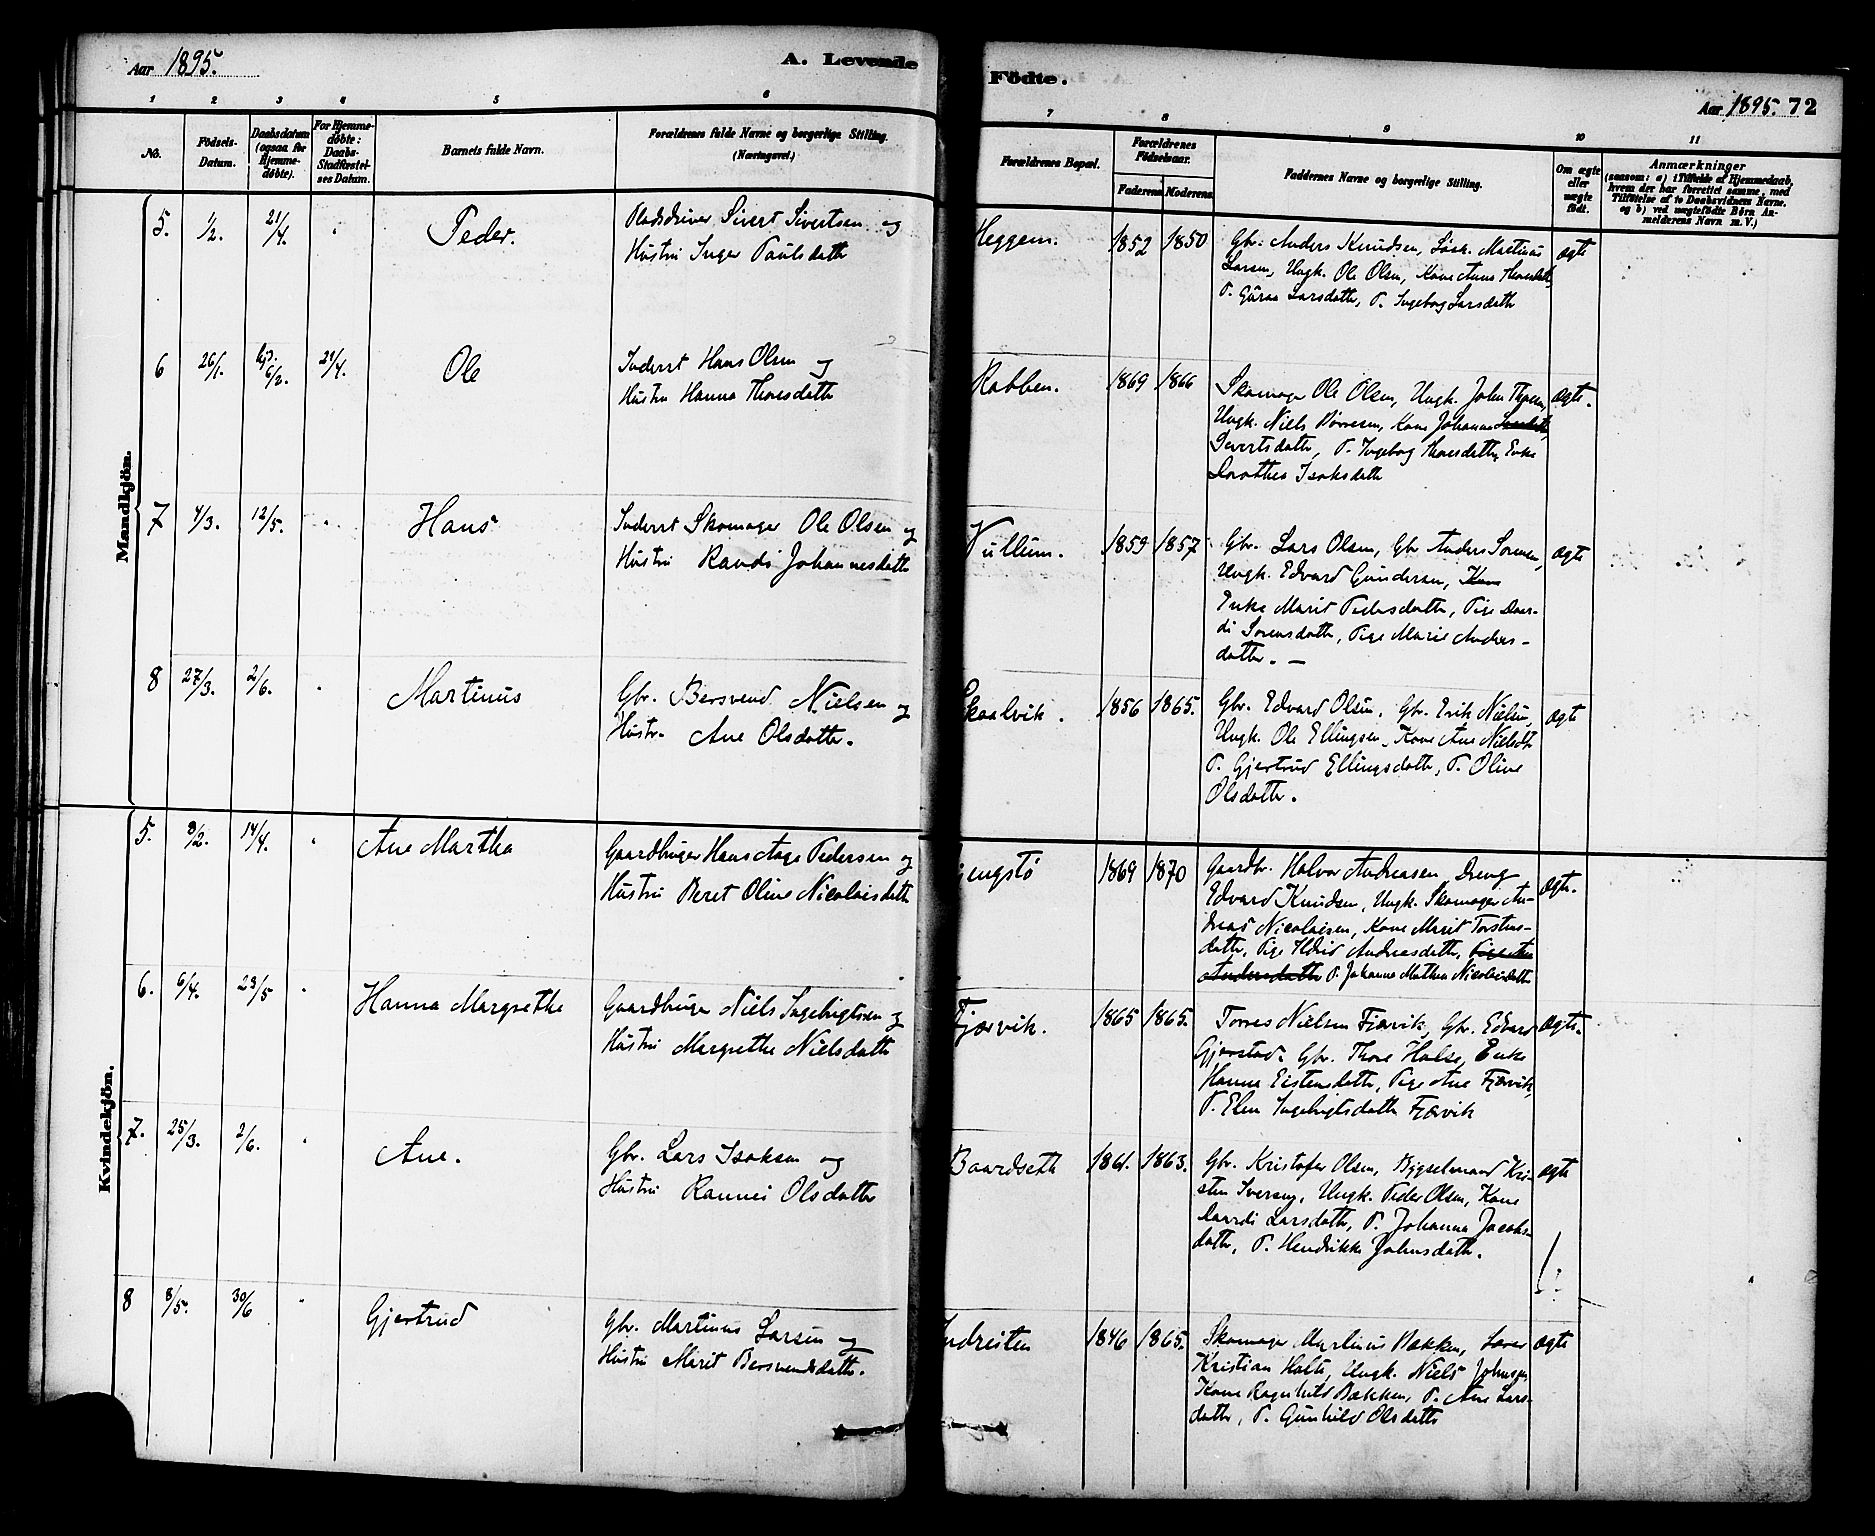 Aar 1895.
A. Levende
1 2 3 4 5 6
No.
Födsels-Datum.
Daabsdatum (ogsaa for Hjemme-döbte).
For Hjemme-döbte: Daabs-Stadfæstel-ses Datum.
Barnets fulde Navn.
Forældrenes fulde Navne og borgerlige Stilling. (Næringsvei.)
Mandkjön.
5. 1/2. 21/4. " Peder.
Pladsdriver Sivert Sivertsen og
Hustru Inger Paulsdatter
6 26/1. hjd. 6/2. 21/4. Ole
Inderst Hans Olsen og
Hustru Hanna Thoresdatter
7 4/3. 12/5. " Hans
Inderst Skomager Ole Olsen og
Hustru Randi Johannesdatter
8 27/3. 2/6. " Martinus
Gbr. Bersvend Nielsen og
Hustr. Ane Olsdatter.
Kvindekjön.
5. 8/2. 14/4. " Ane Martha
Gaardbruger Hans Aage Pedersen og
Hustru Beret Oline Nicolaisdatter
6. 6/4. 23/5 " Hanna Margrethe
Gaardbruger Niels Ingebrigtsen og
Hustru Margrethe Nielsdatter
7. 25/3. 2/6. " Ane.
Gbr. Lars Isaksen og
Hustru Rannei Olsdatter
8 8/5. 30/6 " Gjertrud
Gbr. Martinus Larsen og
Hustru Marit Bersvendsdatter.
Födte.
Aar 1895. 72
7 8 9 10 11
Forældrenes Bopæl.
Forældrenes Födselsaar.
Faderens. Moderens.
Faddernes Navne og borgerlige Stilling.
Om ægte eller uægte födt.
Anmærkninger
(saasom: a) i Tilfælde af Hjemmedaab,
hvem der har forrettet samme, med
Tilföielse af to Daabsvidners Navne.
og b) ved uægtefödte Börn An-
melderens Navn m. V.)
Heggem. 1852 1850 Gbr. Anders Knudsen, Losk. Martinus ægte
Larsen, Ungk. Ole Olsen, Kone Anne Thoresdatt,
P. Guroe Larsdatter, P. Ingebog Larsdatter
Rabben. 1869 1866 Skomager Ole Olsen, Ungk. John Thoresen, ægte.
Ungk. Niels Børresen, Kone Johanna
Sivertsdatter, P. Ingebog Thoresdatter, Enke
Dorothea Isaksdatter
Vullum. 1859 1857 Gbr. Lars Olsen, Gbr Anders Sorensen, ægte
Ungk. Edvard Gundersen, Kone
Enke Marit Pedersdatter, Pige Daar-
di Sorensdatter, Pige Marie Anders-
datter. —
Skaalvik. 1856 1865. Gbr. Edvard Olsen, Gbr. Erik Nielsen, ægte
Ungk. Ole Ellingsen, Kone Ane Nielsdtr
P. Gjertrud Ellingsdatter, P. Oline
Olsdatter.
engstö 1869 1870 Gaardbr. Halvor Andreasen, Dreng ægte.
Edvard Knudsen, Ungk. Skomager An-
dreas Nicolaisen, Kone Marit Torstens-
datter, Pige Ildrid Andreasdatter,
Andersdatter P. Johanna Mathea Nicolaisdatter
Fjærvik. 1865 1865. Torres Nielsen Fjærvik, Gbr. Edvard ægte.
Gjerstad. Gbr. Thore Halse, Enke
Hanna Eistensdatter, Pige Ane Fjærvik,
P. Elen Ingebrigtsdatter Fjærvik
Baardseth 1861. 1863. Gbr. Kristofer Olsen, Bygselmand Kri- ægte
sten Iversen, Ungk. Peder Olsen, Kone
Daardi Larsdatter, P. Johanna Jacobs-
datter, P. Hendrikke Johnsdatter.
Indreiten 1846 1865. Skomager Martinus Bakken, Lærer ægte
Kristian Halte, Ungk. Niels Johnsen
Kone Ragnhild Bakken, P. Ane Lars-
datter, P. Gunhild Olsdatter